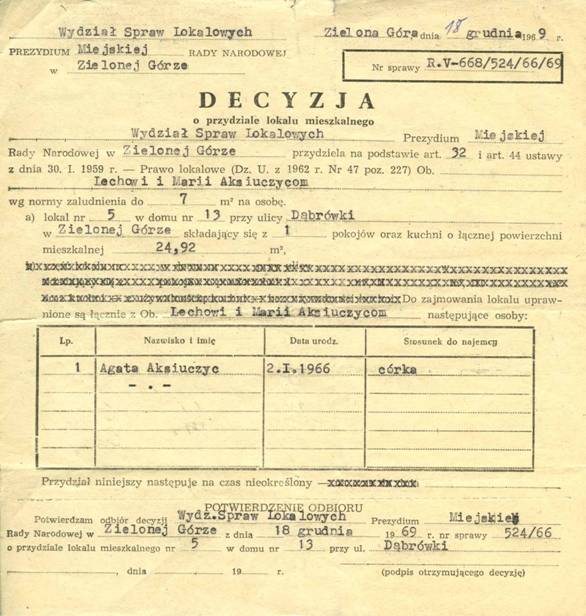 Wydział Spraw Lokalowych Zielona Góra dnia 18 grudnia 1969 r.
PREZYDIUM Miejskiej RADY NARODOWEJ
w Zielonej Górze
Nr sprawy R.V-668/524/66/69
DECYZJA
o przydziale lokalu mieszkalnego
Wydział Spraw Lokalowych Prezydium Miejskiej
Rady Narodowej w Zielonej Górze przydziela na podstawie art. 32 i art. 44 ustawy
z dnia 30. I. 1959 r. — Prawo lokalowe (Dz. U. z 1962 r. Nr 47 poz. 227) Ob.
Lechowi i Marii Aksiuczycom
wg normy zaludnienia do 7 m² na osobę.
a) lokal nr 5 w domu nr 13 przy ulicy Dąbrówki
w Zielonej Górze składający się z 1 pokojów oraz kuchni o łącznej powierzchni
mieszkalnej 24,92 m²,
Do zajmowania lokalu upraw-
nione są łącznie z Ob. Lechowi i Marii Aksiuczycom następujące osoby:
Lp. Nazwisko i imię Data urodz. Stosunek do najemcy
1 Agata Aksiuczyc 2.I.1966 córka
- . -
Przydział niniejszy następuje na czas nieokreślony —
POTWIERDZENIE ODBIORU
Potwierdzam odbiór decyzji Wydz.Spraw Lokalowych Prezydium Miejskiej
Rady Narodowej w Zielonej Górze z dnia 18 grudnia 1969 r. nr sprawy 524/66
o przydziale lokalu mieszkalnego nr 5 w domu nr 13 przy ul. Dąbrówki
, dnia 19 r.
(podpis otrzymującego decyzję)